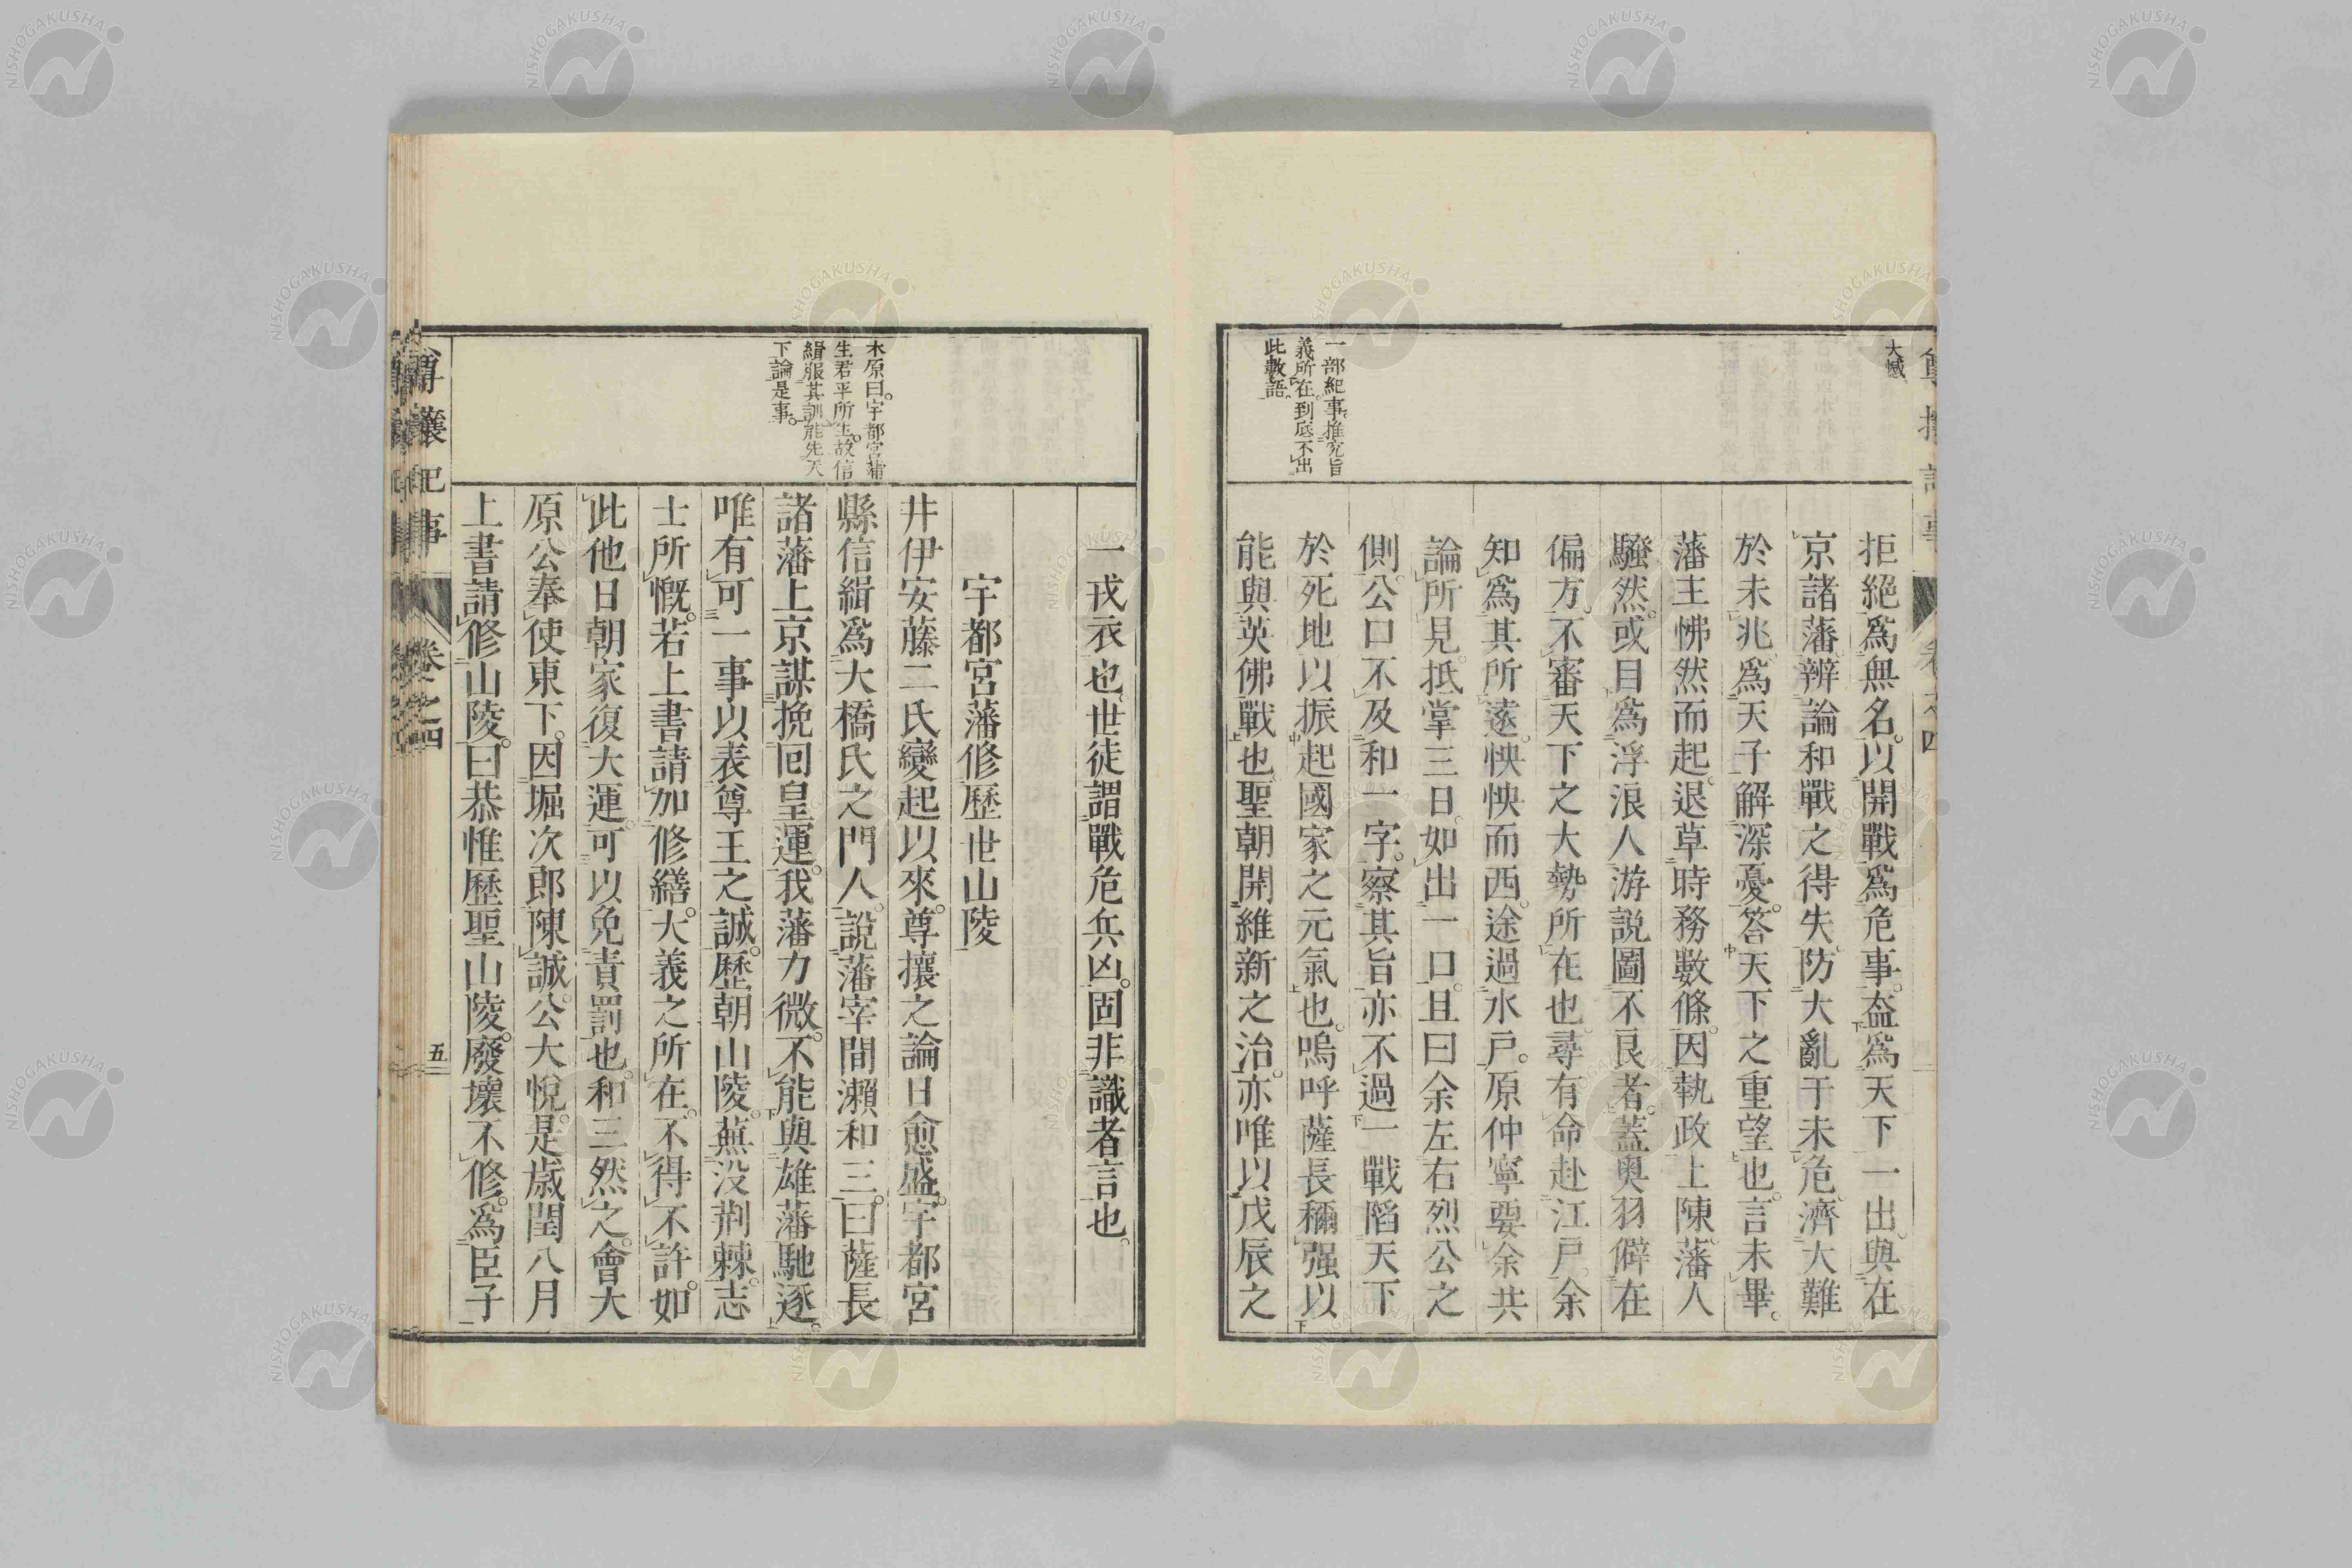 大憾
拒絕爲無名。以開戰爲危事。盇爲天下一出。與在
京諸藩辨論和戰之得失、防大亂于未危、濟大難
於未兆、爲天子解深憂。答天下之重望也。言未畢。
藩主怫然而起。退草時務數條。因執政上陳。藩人
騷然。或目爲浮浪人游說圖不良者。蓋奧羽僻在
偏方。不審天下之大勢所在也。尋有命赴江戶。余
知爲其所逺。怏怏而西。途過水戶。原仲寧要余共
論所見。抵掌三日。如出一口。且曰余左右烈公之
側。公口不及和一字。察其旨亦不過一戰陷天下
於死地以振起國家之元氣也。嗚呼薩長稱强以
能與英佛戰也。聖朝開維新之治。亦唯以戊辰之
一部紀事。推究旨
義所在。到底不出
此數語。
一戎衣也、世徒謂戰危兵凶。固非識者言也。
宇都宮藩修歷世山陵
井伊安藤二氏變起以來。尊攘之論日愈盛。宇都宮
縣信緝爲大橋氏之門人。說藩宰間瀨和三。曰薩長
諸藩上京謀挽回皇運。我藩力微。不能與雄藩馳逐。
唯有可一事以表尊王之誠。歷朝山陵。蕪没荆棘。志
士所慨。若上書請加修繕。大義之所在。不得不許。如
此他日朝家復大運。可以免責罰也。和三然之。會大
原公奉使東下。因堀次郎陳誠。公大悅。是歲閏八月
上書請修山陵。曰恭惟歷聖山陵。廢壞不修。爲臣子
木原曰。宇都宮蒲
生君平所生。故信
緝服其訓能先天
下論是事。
尊攘紀事 卷之四 五
NISHOGAKUSHA